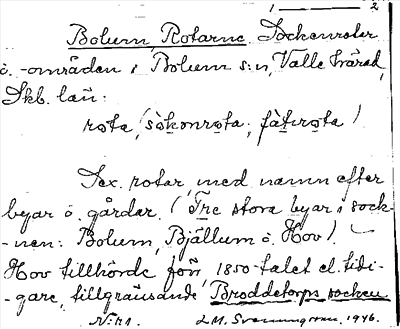 1 — 2
Bolum, Rotarne. Sockenrotar
o. -områden i Bolum s:n, Valle härad,
Skb. län:
rota (sokonrota, fatirota)
Sex rotar, med namn efter
byar o. gårdar. (Tre stora byar i sock-
-nen: Bolum, Bjällum o. Hov).
Hov tillhörde förr, 1850-talet el. tidi-
-gare, tillgränsande Broddetorps socken.
1946.